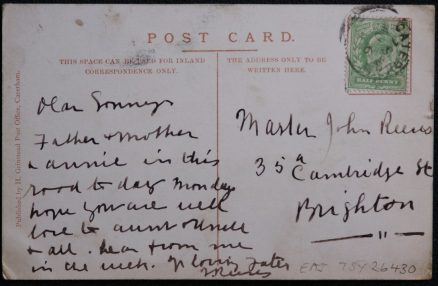 POST CARD.
THIS SPACE CAN BE USED FOR INLAND
CORRESPONDENCE ONLY.
THE ADDRESS ONLY TO BE
WRITTEN HERE.
HALF PENNY
Published by H. Grimstead Post Office, Caterham.
Dear Sonneys
Father & Mother
& Annie in this
road to day Monday
hope you are well
love to aunt &
& all. hear from me
in the week. yr lovin Father
Master John Reeves
35a Cambridge St
Brighton